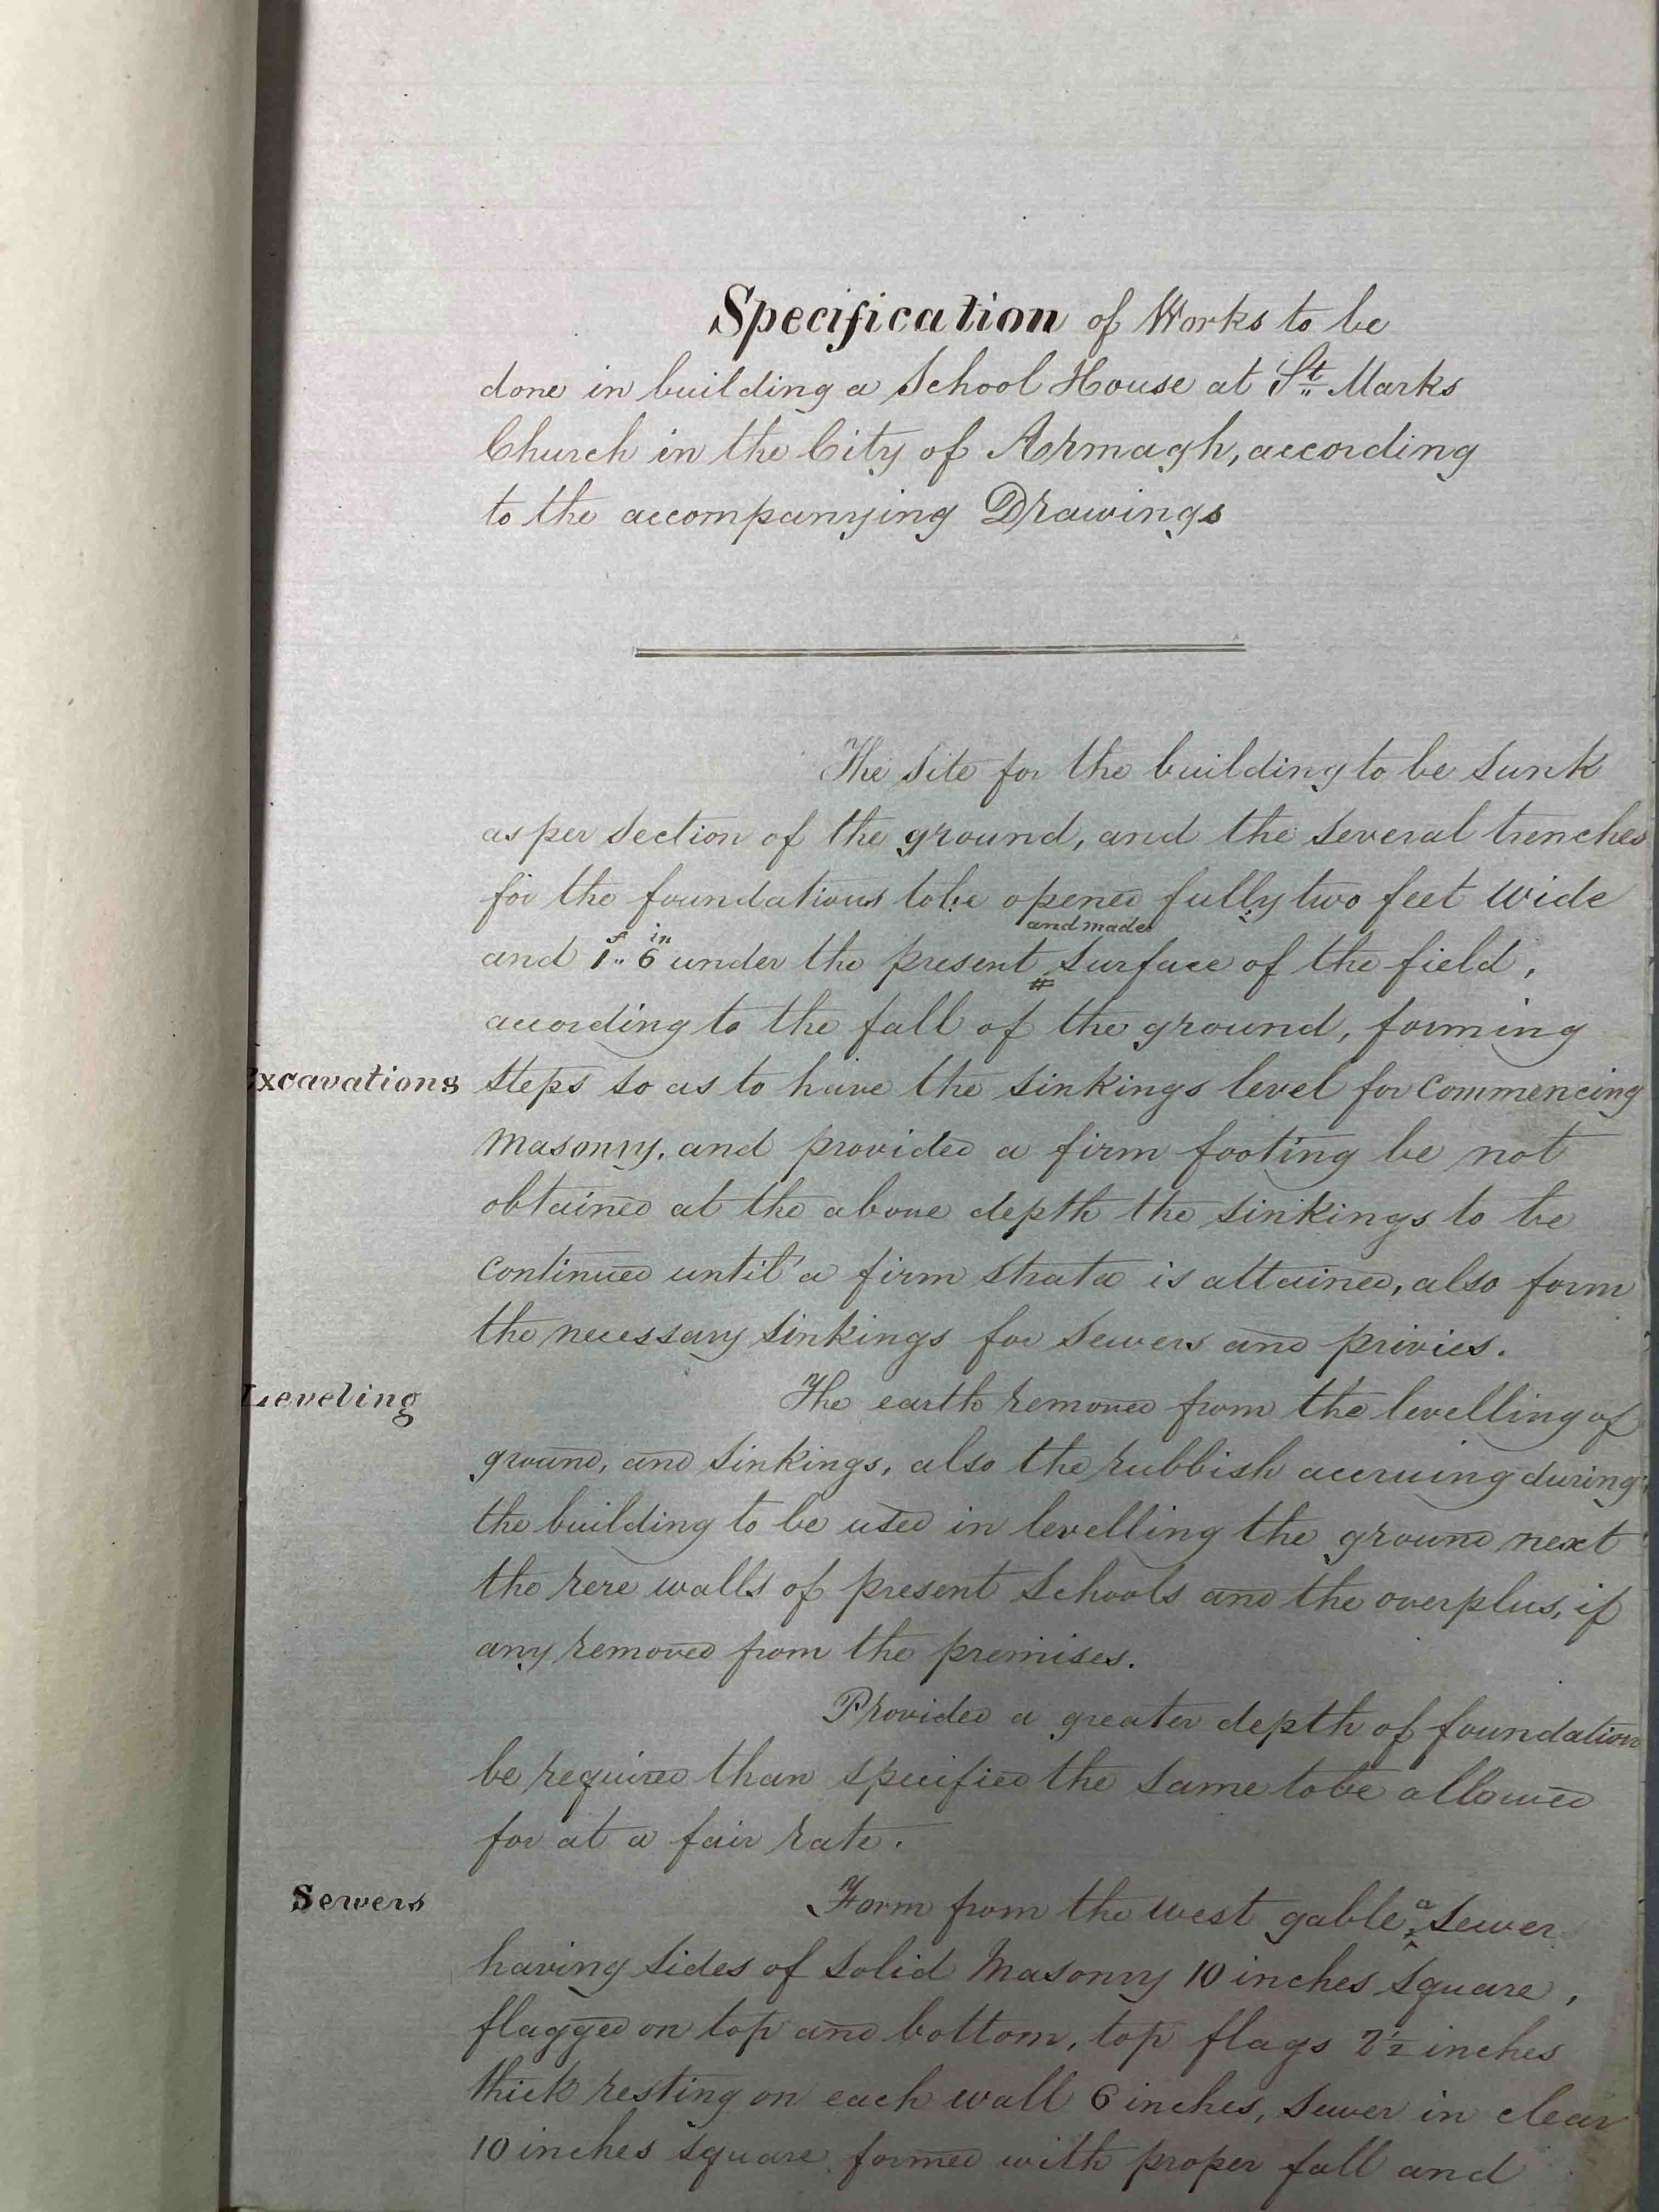 Specification of Works to be
done in building a School House at St. Marks
Church in the City of Armagh, according
to the accompanying Drawings
The site for the building to be sunk
as per section of the ground, and the several trenches
for the foundations to be opened fully two feet wide
and made
and 1f.. 6in under the present # surface of the field,
according to the fall of the ground, forming
Excavations steps so as to have the sinkings level for commencing
masonry, and provided a firm footing be not
obtained at the above depth the sinkings to be
continued until a firm strata is attained, also form
the necessary sinkings for sewers and privies.
Leveling The earth removed from the levelling of
ground, and sinkings, also the rubbish accruing during
the building to be used in levelling the ground next
the rere walls of present schools and the overplus, if
any removed from the premises.
Provided a greater depth of foundation
be required than specified the same to be allowed
for at a fair rate.
Sewers Form from the west gable a sewer
having sides of solid masonry 10 inches square,
flagged on top and bottom, top flags 2½ inches
thick resting on each wall 6 inches, sewer in clear
10 inches square formed with proper fall and